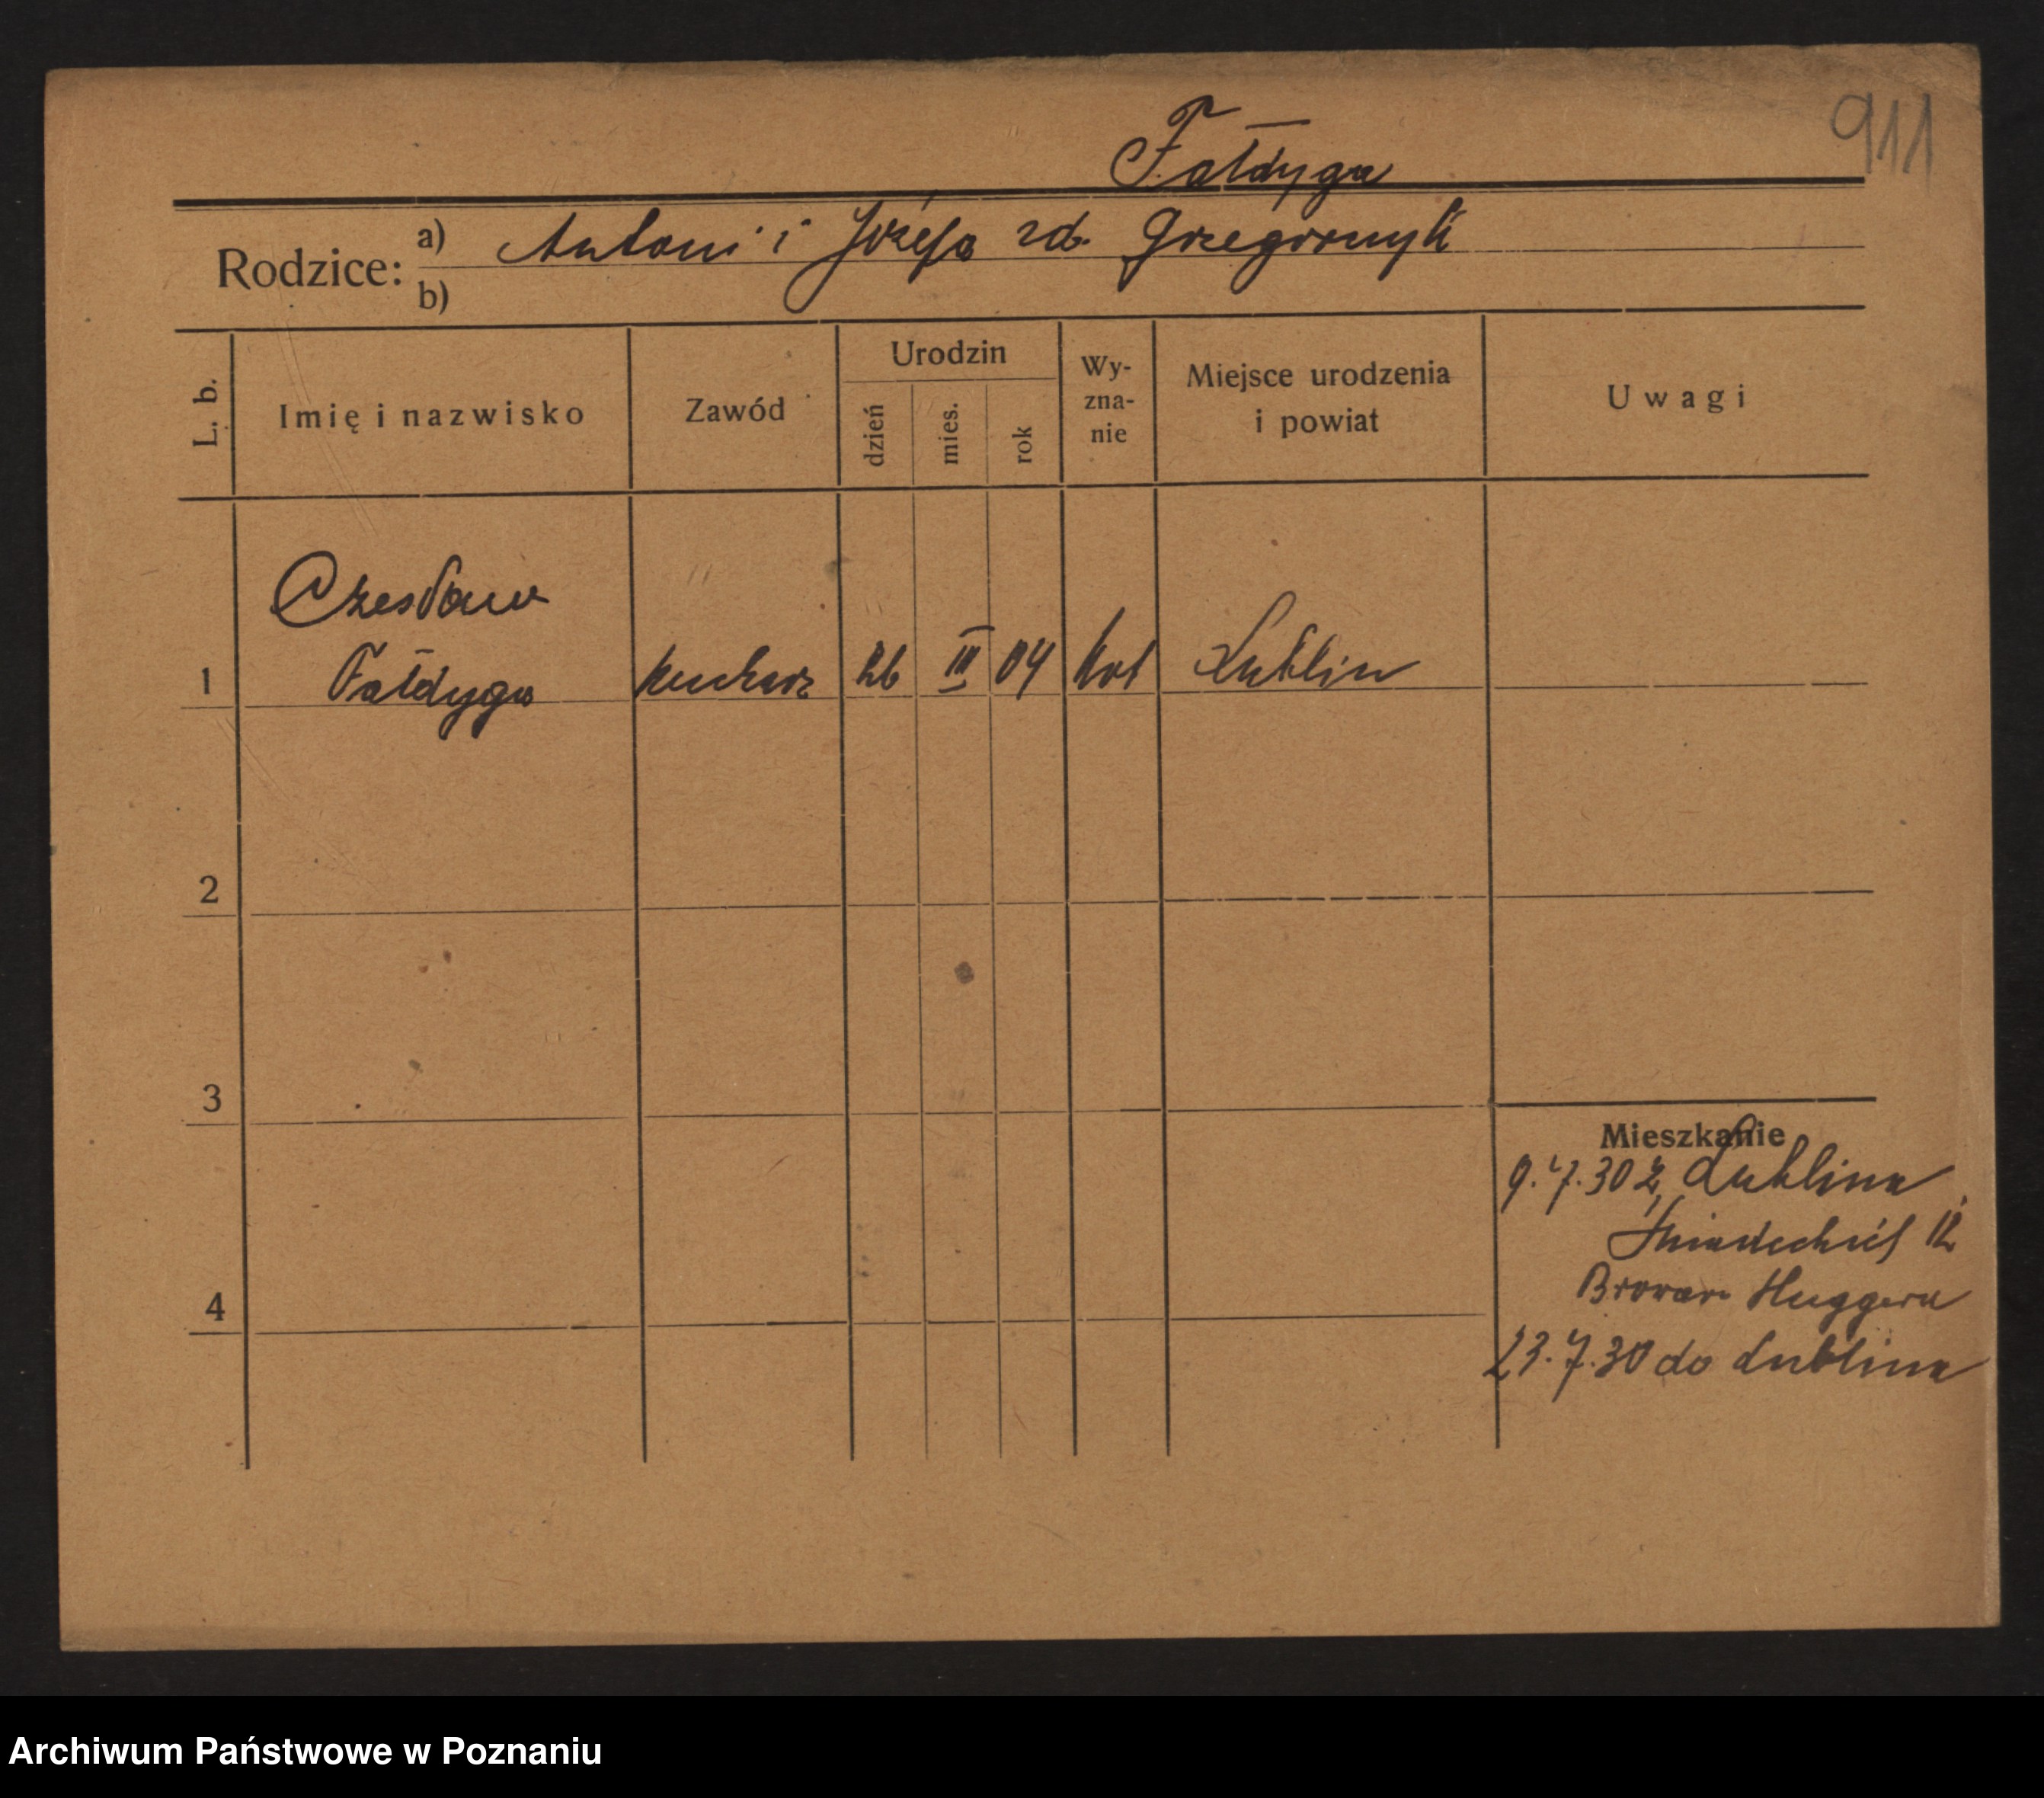 911
Fałdyga
Rodzice:
a) Antoni i Józefa zd. Grzegorczyk
b)
L. b.
Imię i nazwisko
Zawód
Urodzin
dzień
mies.
rok
Wy-
zna-
nie
Miejsce urodzenia
i powiat
Uwagi
Czesław
1 Fałdyga kucharz 26 III 04 kat Lublin
2
3
4
Mieszkanie
9.7.30 z Lublina
12
Browar Huggera
23.7.30 do Lublina
Archiwum Państwowe w Poznaniu